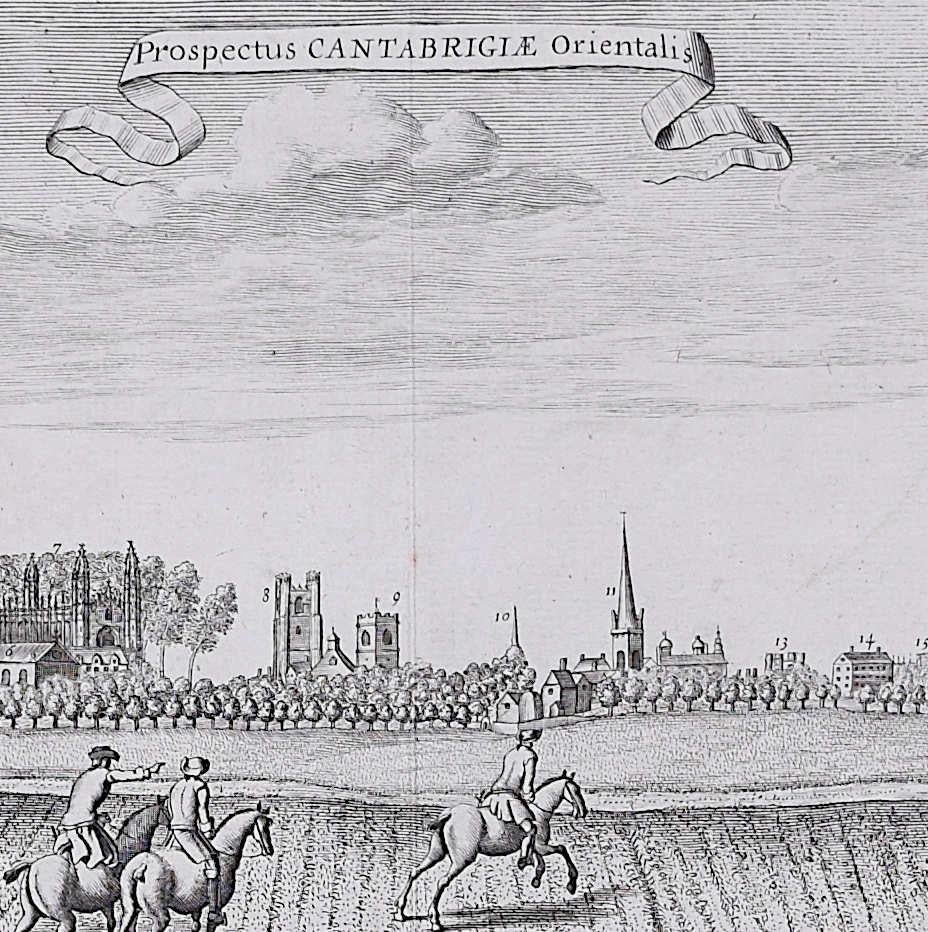 Prospectus CANTABRIGIÆ Orientalis
7
8
9
10
11
13
14
15